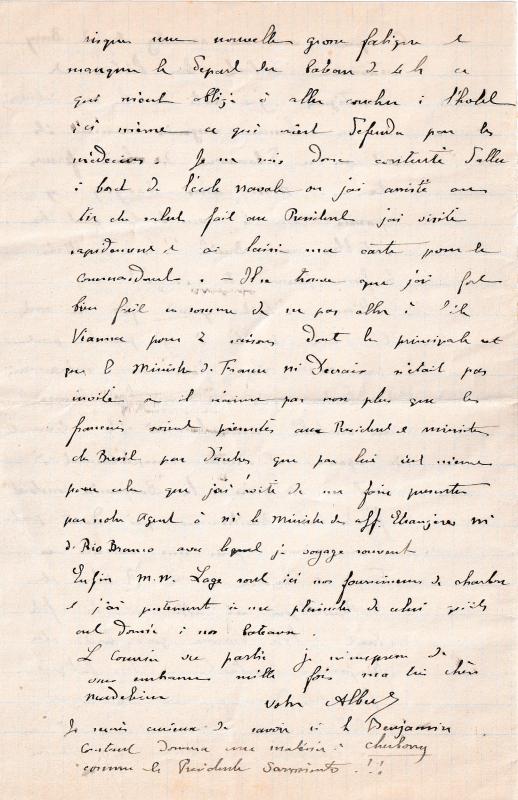 risquer une nouvelle grosse fatigue et
manquer le départ du bateau de 4 h ce
qui m'eut obligé à aller coucher à l'hotel
ici même ce qui m'est défendu par les
médecins. Je me suis donc contenté d'aller
à bord de l'école navale où j'ai assisté au
tir de salut fait au President j'ai visité
rapidement et ai laissé ma carte pour le
Commandant. — Il se trouve que j'ai fort
bien fait en somme de ne pas aller à l'ile
Vianna pour 2 raisons dont la principale est
que le Ministre de France Mr Decrais n'était pas
invité or il n'aime pas non plus que les
français soient présentés aux President et ministres
du Bresil par d'autres que par lui c'est même
pour cela que j'ai évité de me faire presenter
par notre agent à ni le Ministre des aff. Etrangères Mr
de Rio Branco avec lequel je voyage souvent
Enfin M.M. Lage sont ici nos fournisseurs de charbon
et j'ai justement à me plaindre de celui qu'ils
ont donné à nos bateaux.
Le Courrier va partir je m'empresse de
vous embrasser mille fois ma bien chère
Madeleine votre Albert
Je serais curieux de savoir si le Benjamin
Constant donnera une matinée à Cherbourg
comme le Presidente Sarmiento !!!